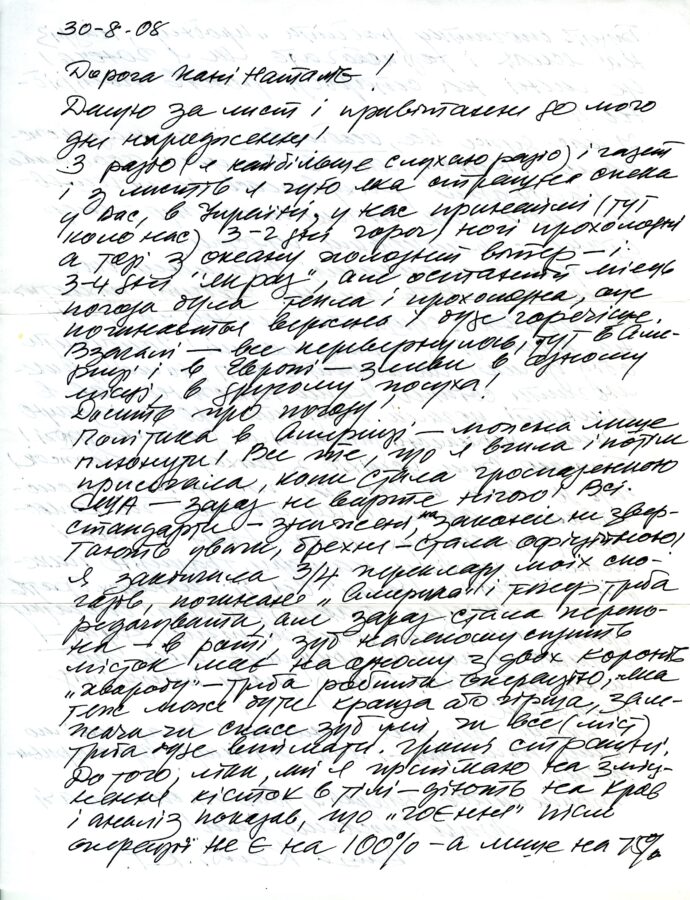 30-8-08
Дорога Пані Наталіє!
Дякую за лист і привітання до мого
дня народження!
З радіо (я найбільше слухаю радіо) і газет
і з листів я чую яка страшна спека
у Вас, в Україні, у нас принаймні (тут
коло нас) 3-2 дні горяч, ночі прохолодні
а тоді з океану холодний вітер – і
3-4 дні "якраз", але останній місяць
погода була тепла і прохолодна, але
починається вересень і буде гарячіше.
Взагалі – все перевернулось, тут в Аме-
риці і в Європі – зливи в одному
місці, в другому посуха!
Досить про погоду!
Політика в Америці – можна лише
плюнути! Все те, що я вчила і потім
присягала, коли стала громадянкою
США – зараз не варте нічого! Всі
стандарти – знижені, на закони не звер-
тають уваги, брехня – стала офіційною!
Я закінчила 3/4 перекладу моїх спо-
гадів, починаю "Америка" і тепер треба
редагувати, але зараз стала перепо-
на – в роті, зуб на якому сидить
місток має на одному з двох коренів
"хворобу" – треба робити операцію, яка
теж може бути краща або гірша, зале-
жачи чи спасе зуб цей, чи все (міст)
треба буде виймати. Гроші страшні.
До того, ліки, які я приймаю на зміц-
нення кісток в тілі – діють на кров
і аналіз показав, що "гоєння" після
операції не є на 100% – а лише на 75%